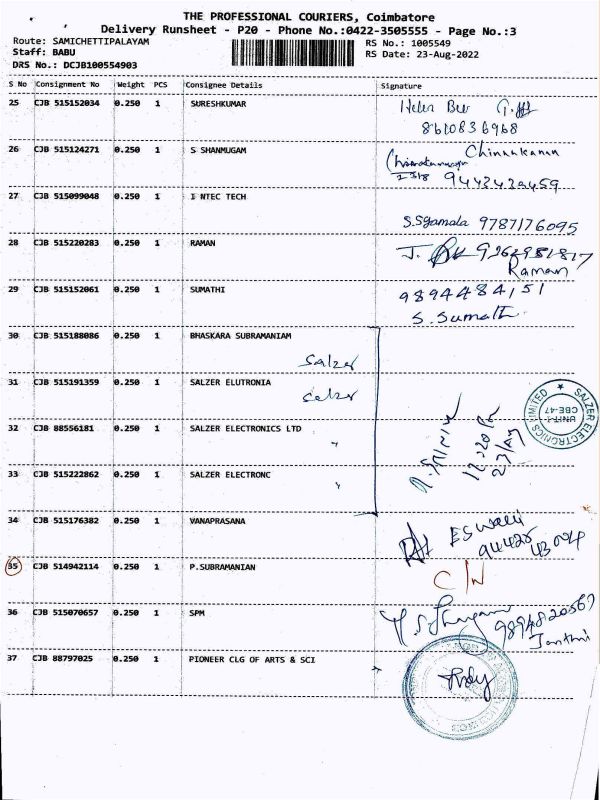 THE PROFESSIONAL COURIERS, Coimbatore
Delivery Runsheet - P20 - Phone No.:0422-3505555 - Page No.:3
Route: SAMICHETTIPALAYAM RS No.: 1005549
Staff: BABU RS Date: 23-Aug-2022
DRS No.: DCJB100554903
S No Consignment No Weight PCS Consignee Details Signature
25 CJB 515152034 0.250 1 SURESHKUMAR
8610836968
26 CJB 515124271 0.250 1 S SHANMUGAM Chinnakanan
9442429459
27 CJB 515099048 0.250 1 I NTEC TECH
S.Syamala 9787176095
28 CJB 515220283 0.250 1 RAMAN
Raman
29 CJB 515152061 0.250 1 SUMATHI 9894484151
S. Sumathi
30 CJB 515188086 0.250 1 BHASKARA SUBRAMANIAM
Salzer
31 CJB 515191359 0.250 1 SALZER ELUTRONIA
Salzer
32 CJB 88556181 0.250 1 SALZER ELECTRONICS LTD
"
33 CJB 515222862 0.250 1 SALZER ELECTRONC
"
SALZER ELECTRONICS LIMITED
UNIT-1
CBE-47
34 CJB 515176382 0.250 1 VANAPRASANA
Eswari
94428
43004
35 CJB 514942114 0.250 1 P.SUBRAMANIAN
C/N
36 CJB 515070657 0.250 1 SPM
9894820567
Janthi
37 CJB 88797025 0.250 1 PIONEER CLG OF ARTS & SCI